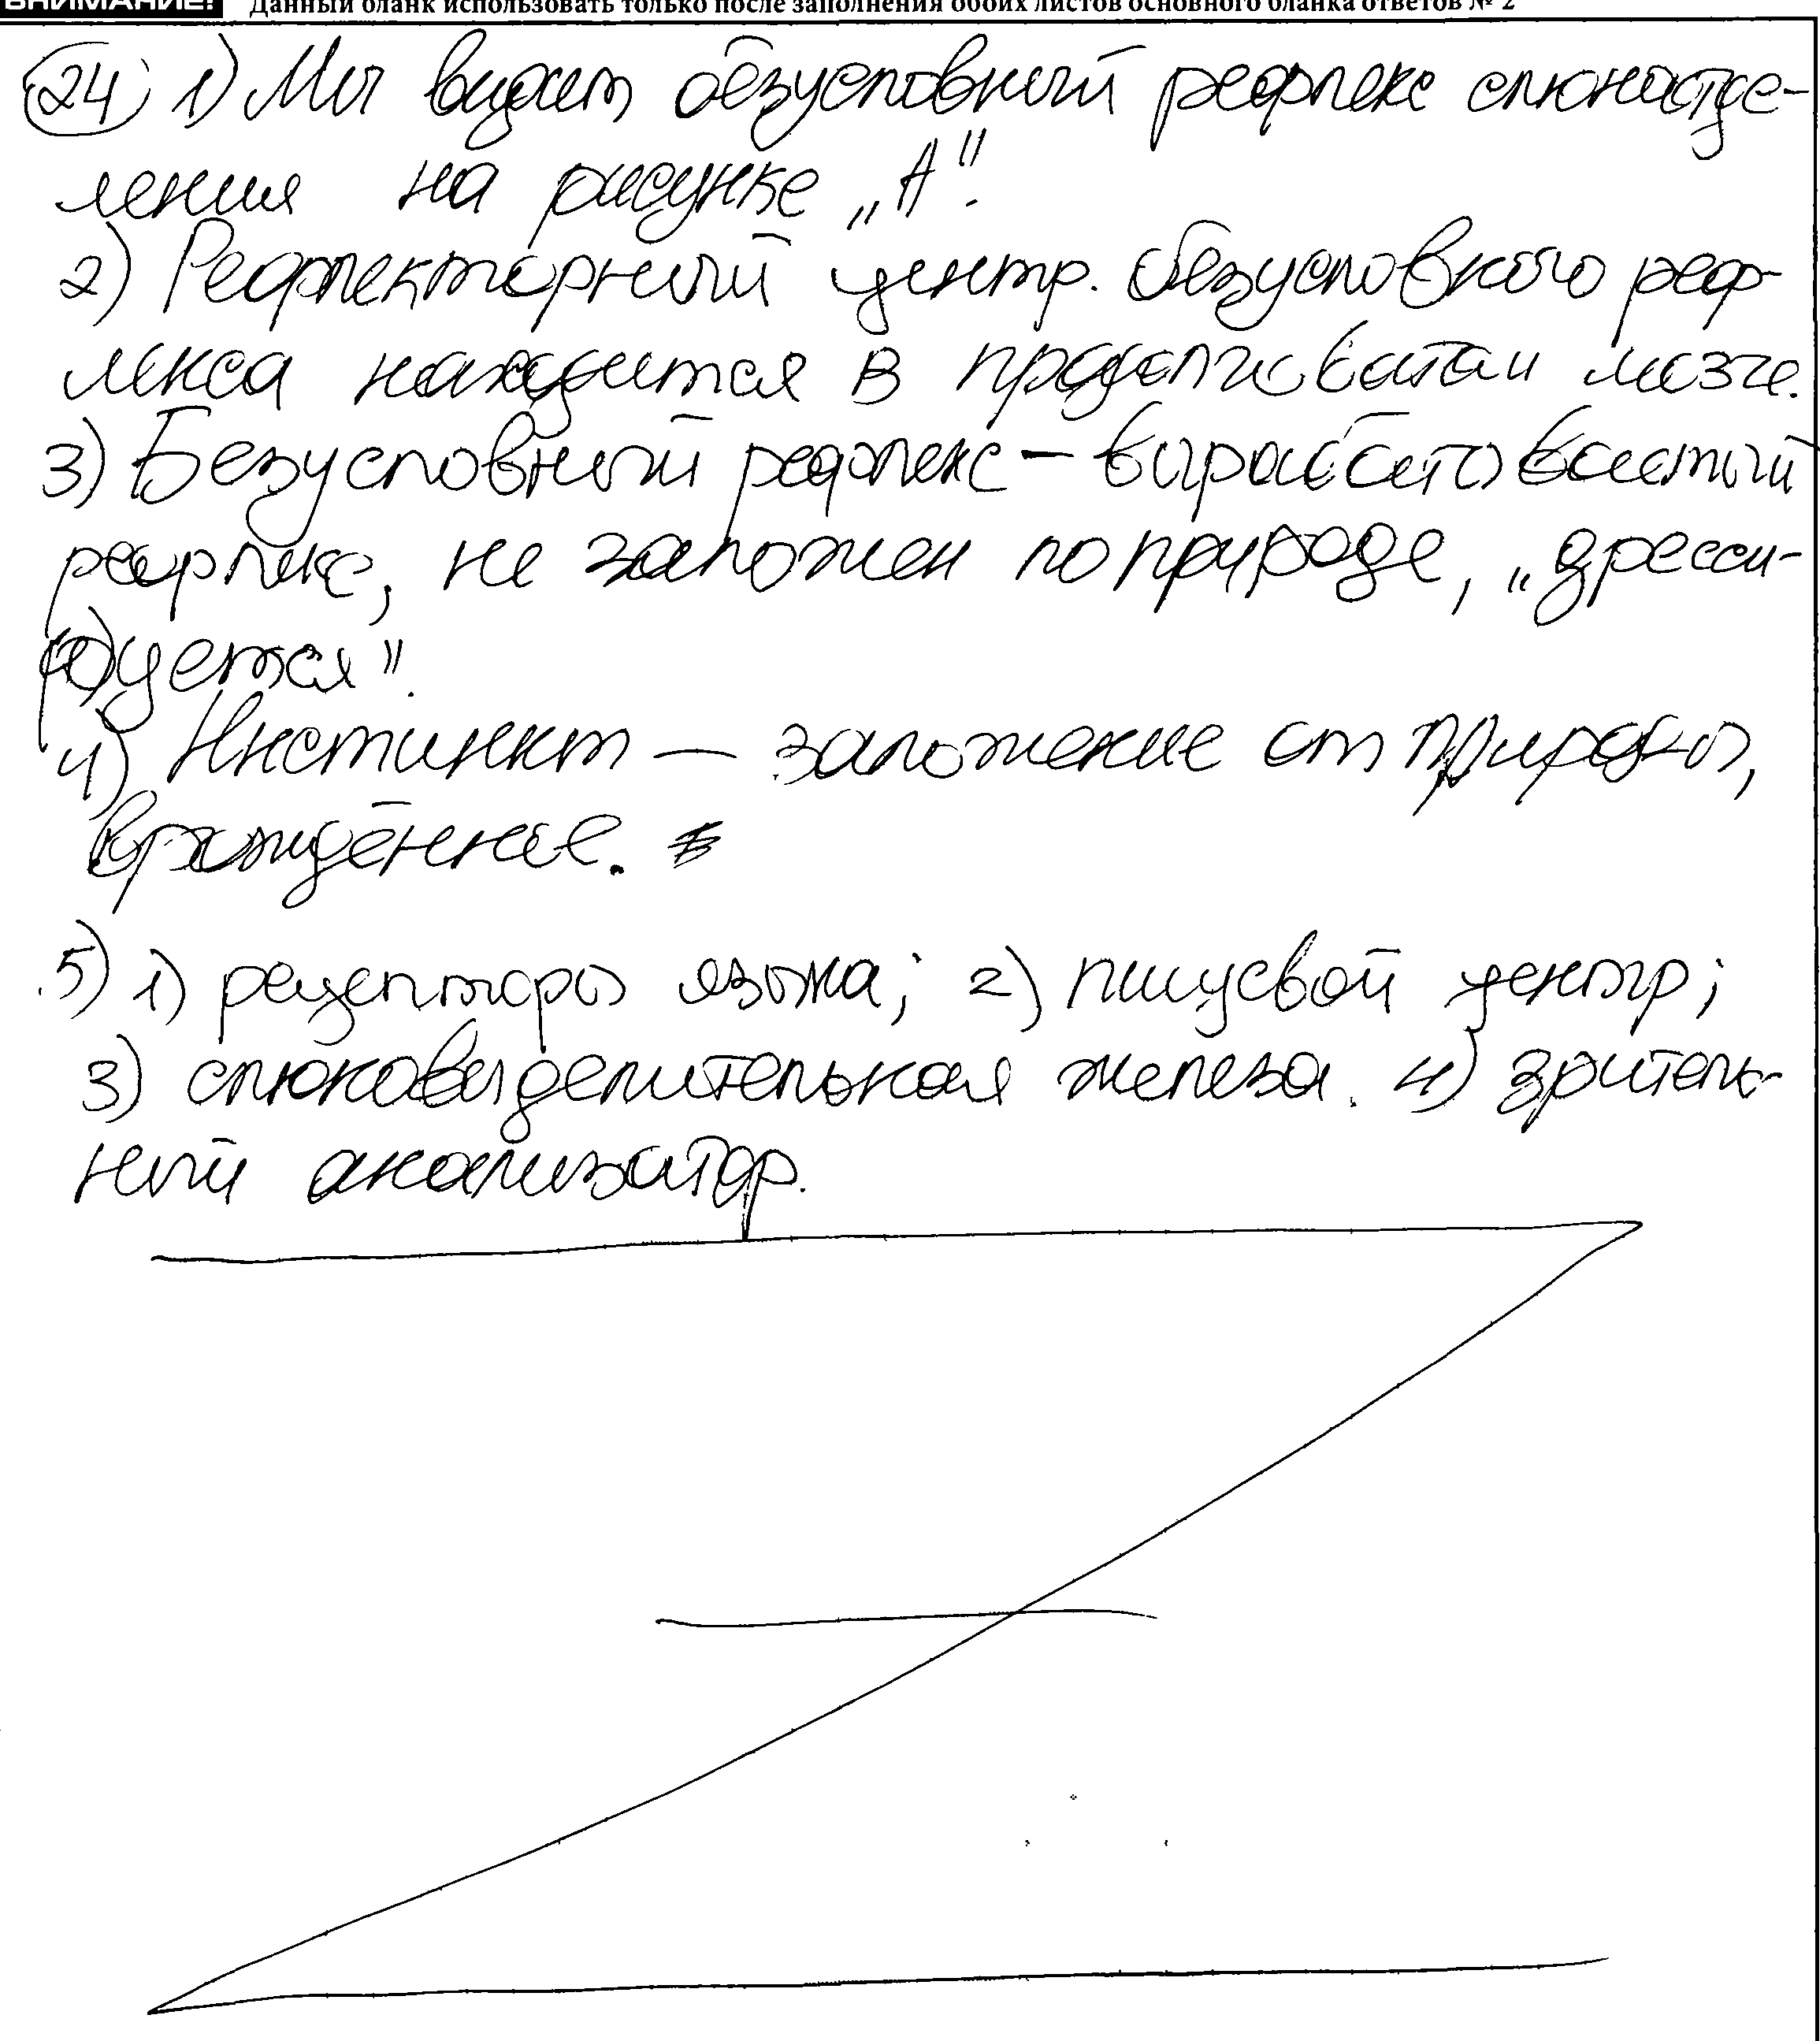 ВНИМАНИЕ! Данный бланк использовать только после заполнения обоих листов основного бланка ответов № 2
24 1) Мы видим безусловный рефлекс слюноотде-
ления на рисунке „А".
2) Рефлекторный центр. безусловного реф-
лекса находится в продолговатом мозге.
3) Безусловный рефлекс – вырабатываемый
рефлекс, не заложен по природе, „дресси-
руется".
4) Инстинкт — заложение от природы,
врождённые.
5) 1) рецепторы языка; 2) пищевой центр;
3) слюновыделительная железа. 4) зритель-
ный анализатор.